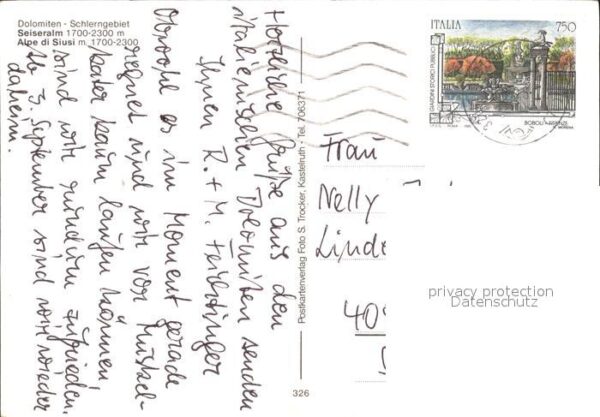 Dolomiten - Schlerngebiet
Seiseralm 1700-2300 m
Alpe di Siusi m 1700-2300
Herzliche Grüße aus den
italienischen Dolomiten senden
Ihnen R. + M. Feichtinger
Obwohl es im Moment gerade
regnet und wir vor Muskel-
kater kaum laufen können,
sind wir rundum zufrieden.
Ab 3. September sind wir wieder
daheim.
Postkartenverlag Foto S. Trocker, Kastelruth - Tel. 706371
326
ITALIA 750
GIARDINI STORICI PUBBLICI
BOBOLI - FIRENZE
Frau
Nelly
Linde
40
privacy protection
Datenschutz